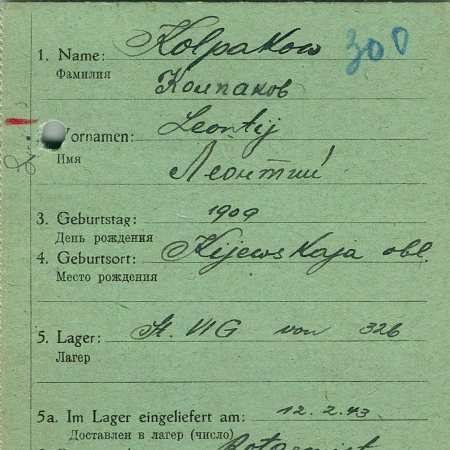 1. Name: Kolpakow 300
Фамилия Колпаков
Vornamen: Leontij
Имя Леонтий
3. Geburtstag: 1909
День рождения
4. Geburtsort: Kijewskaja obl.
Место рождения
5. Lager: St. VI G von 326
Лагерь
5a. Im Lager eingeliefert am: 12.2.43
Доставлен в лагерь (число)